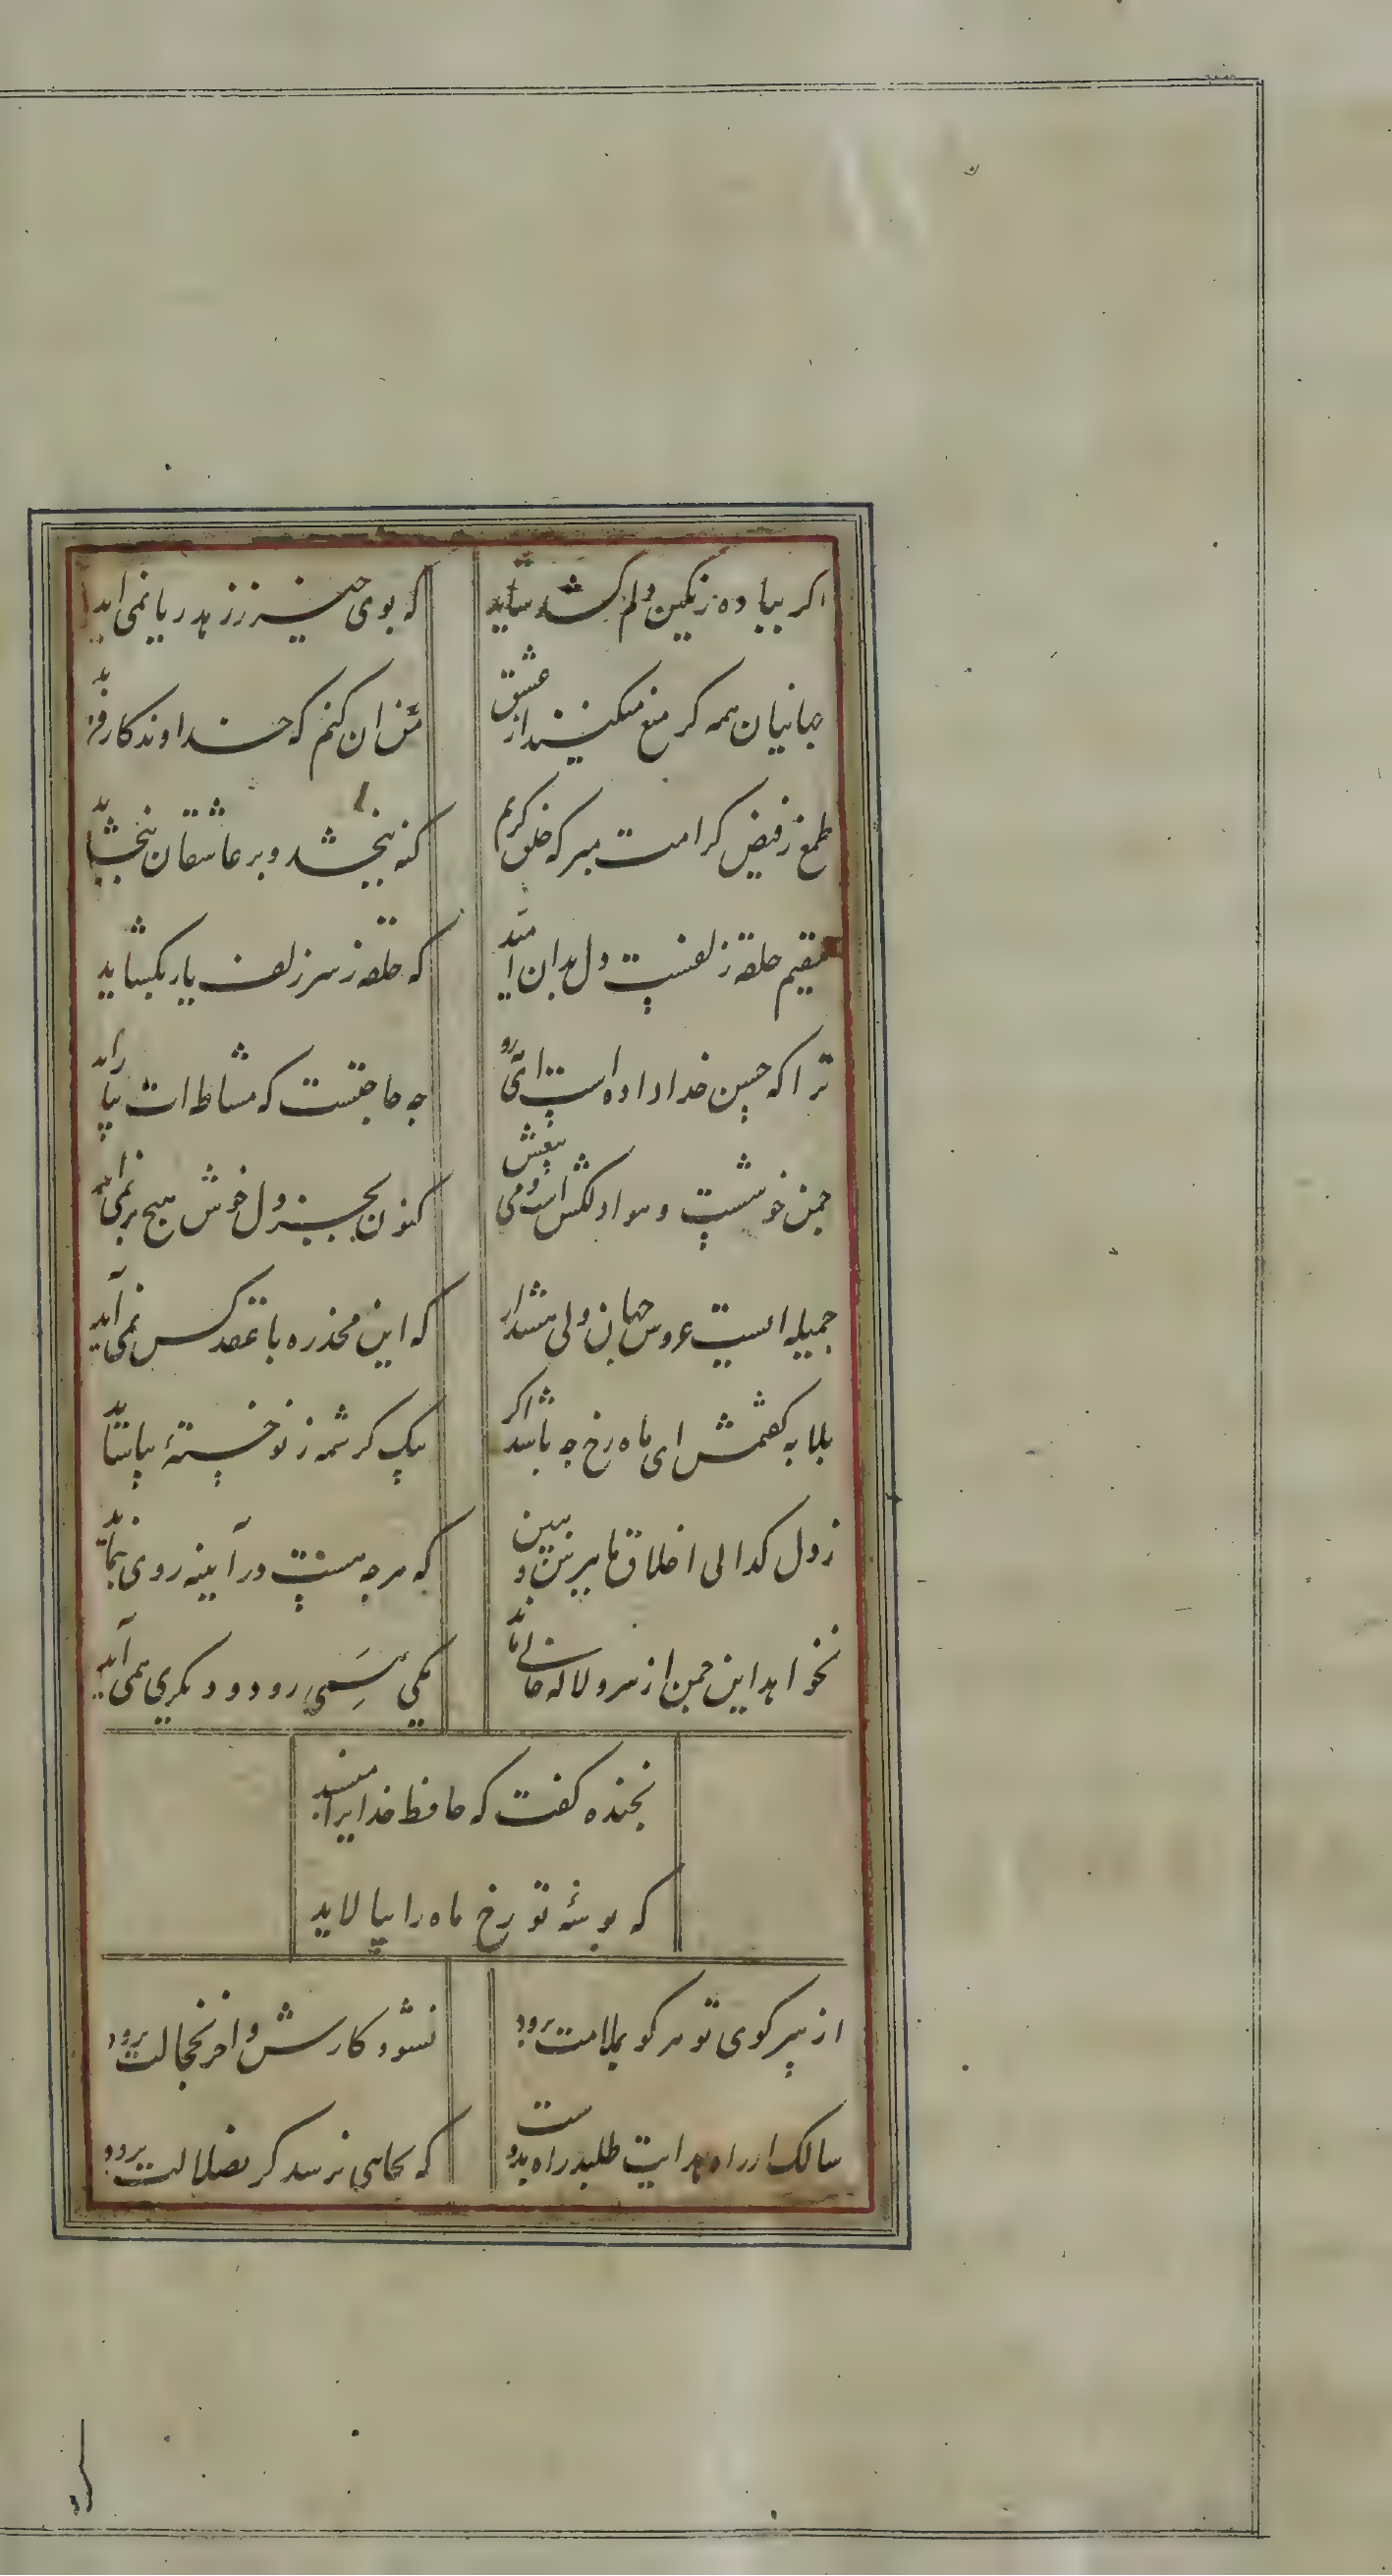 اکر بباده رنکین دلم کشد شاید
که بوی خیر ز زهد ریا نمی اید
جهانیان همه کر منع میکنند از عشق
من ان کنم که خداوندکار فرماید
طمع ز فیض کرامت مبر که خلق کریم
کنه ببخشد و بر عاشقان ببخشاید
مقیم حلقه زلفست دل بدان امید
که حلقه ز سر زلف یار بکشاید
ترا که حسن خداداده است ای
چه حاجتست که مشاطه ات بیاراید
چمن خوشست و هوا دلکش است و می بیغش
کنون بجز دل خوش هیچ برنمی اید
جمیله ایست عروس جهان ولی هشدار
که این مخدره با عقد کس نمی آید
بلابه کفتمش ای ماه رخ چه باشد اکر
بیک کرشمه ز تو خستهٔ بیاساید
ز دل کدالی اخلاق ما ببین و
که هرچه هست در آیینه روی بنماید
نخواهد این چمن از سرو لاله خالی ماند
یکی همی رود و دیکری همی آید
بخنده کفت که حافظ خدایرا مپسند
که بوسهٔ تو رخ ماه را بیالاید
از سر کوی تو هر کو بملامت برود
نشود کارش و اخر بخجالت برود
سالک ار راه هدایت طلبد راه بدوست
که بجایی نرسد کر بضلالت برود